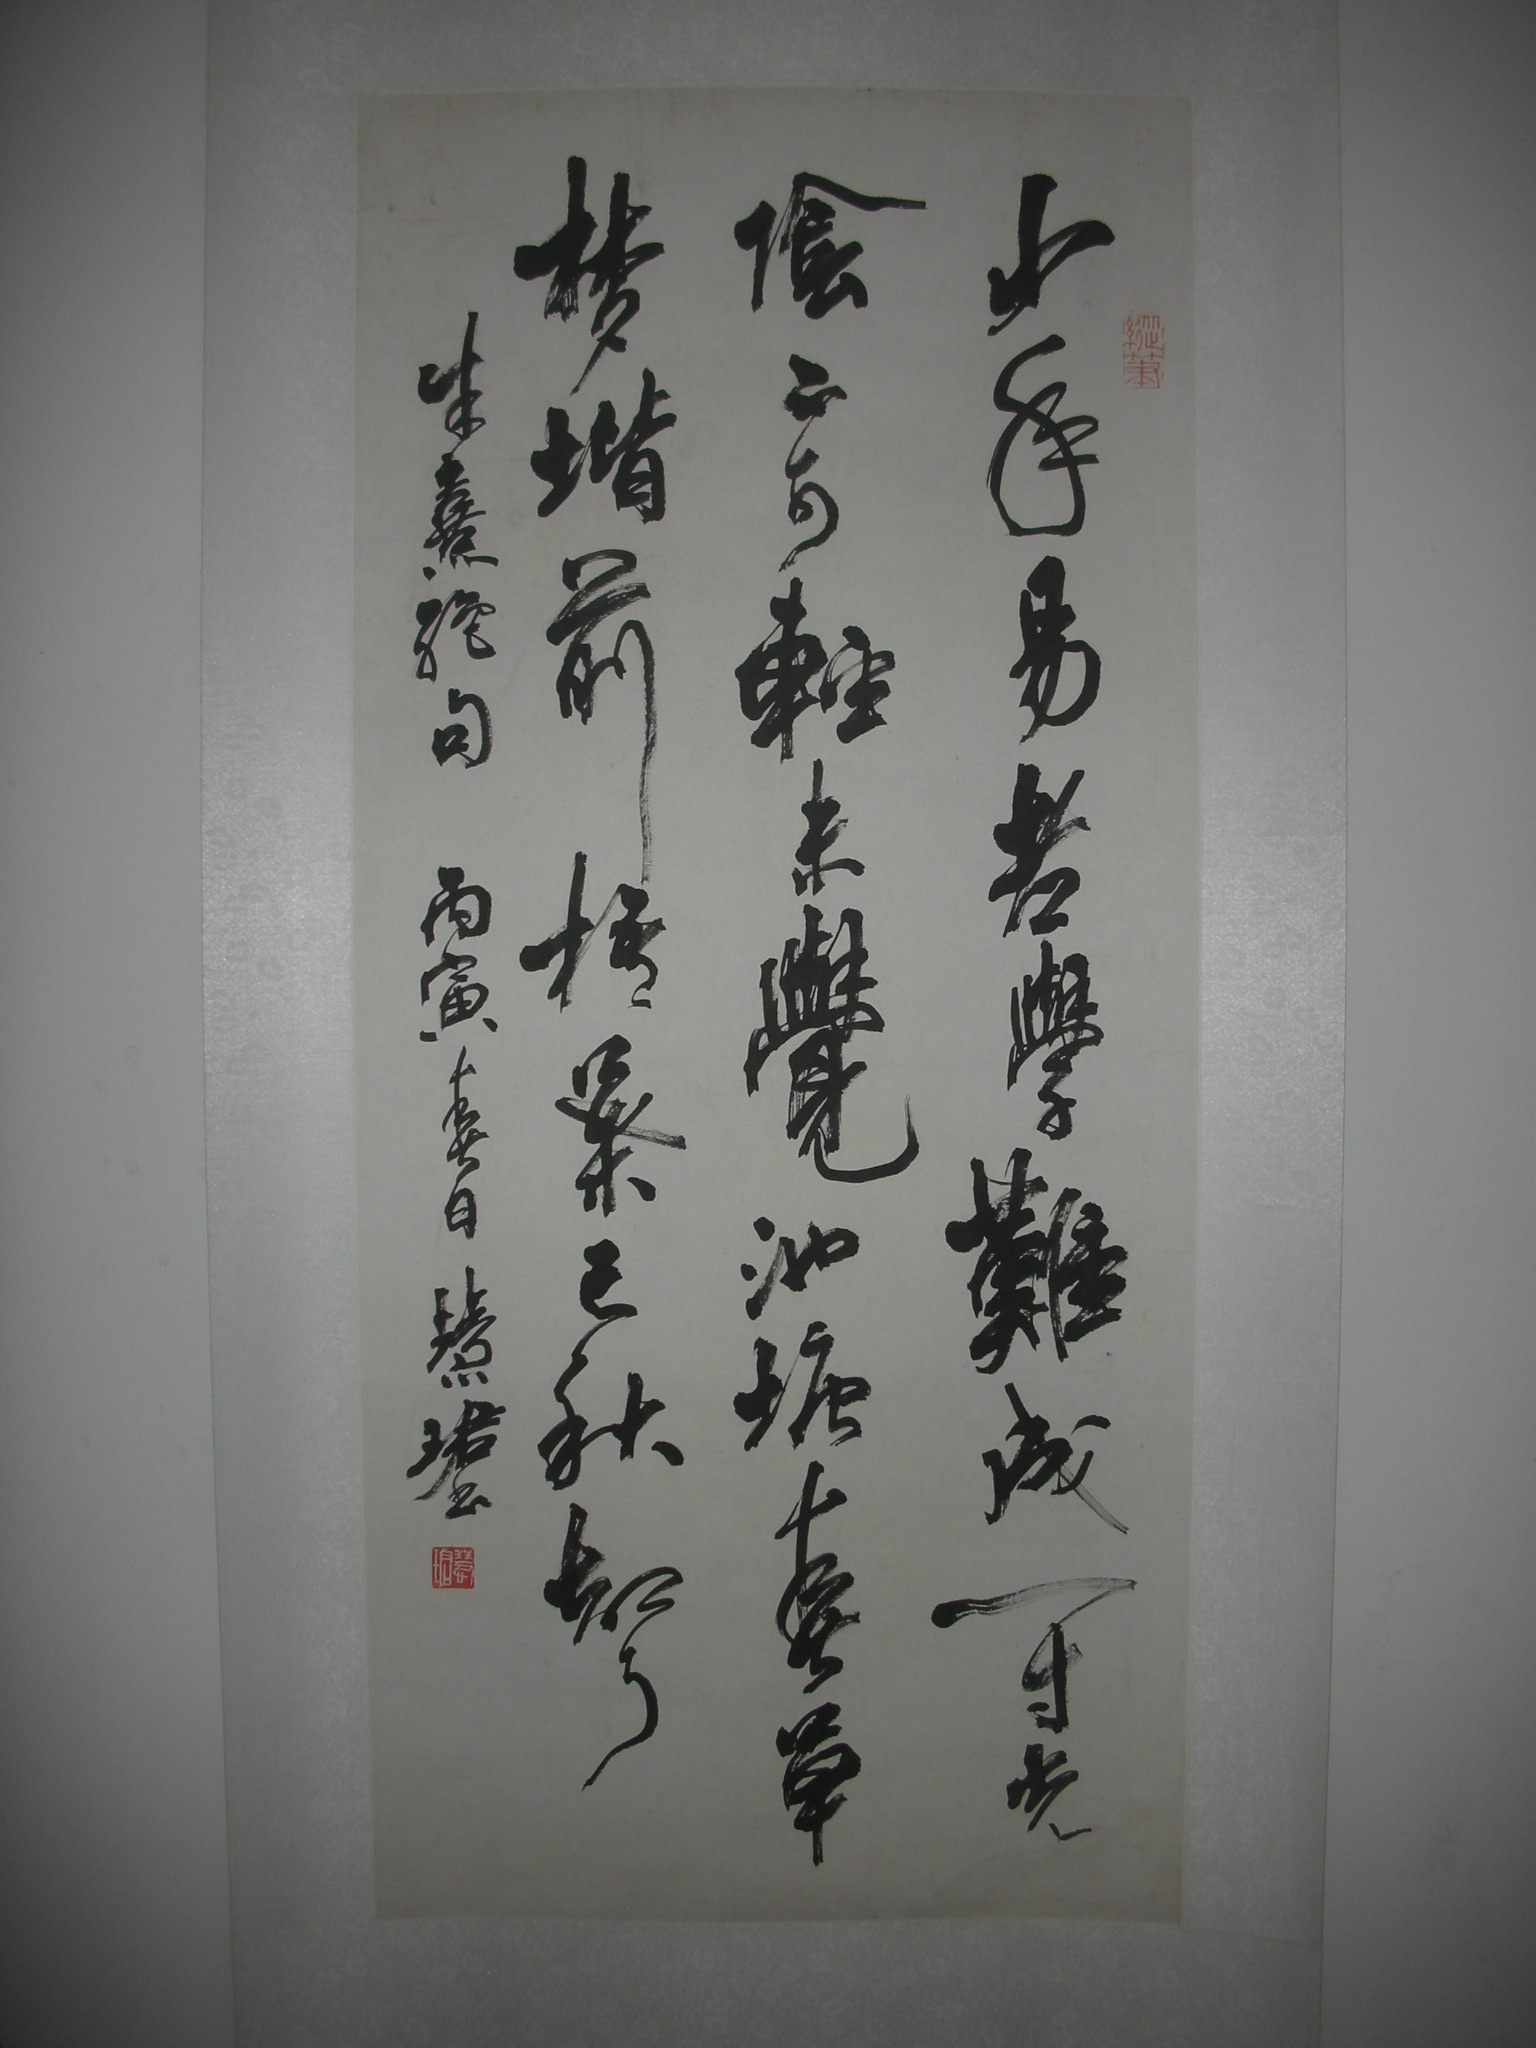 少年易老學難成一寸光
陰不可輕未覺池塘春草
夢堦前梧葉已秋聲
朱熹絶句 丙寅春日 慧珺書